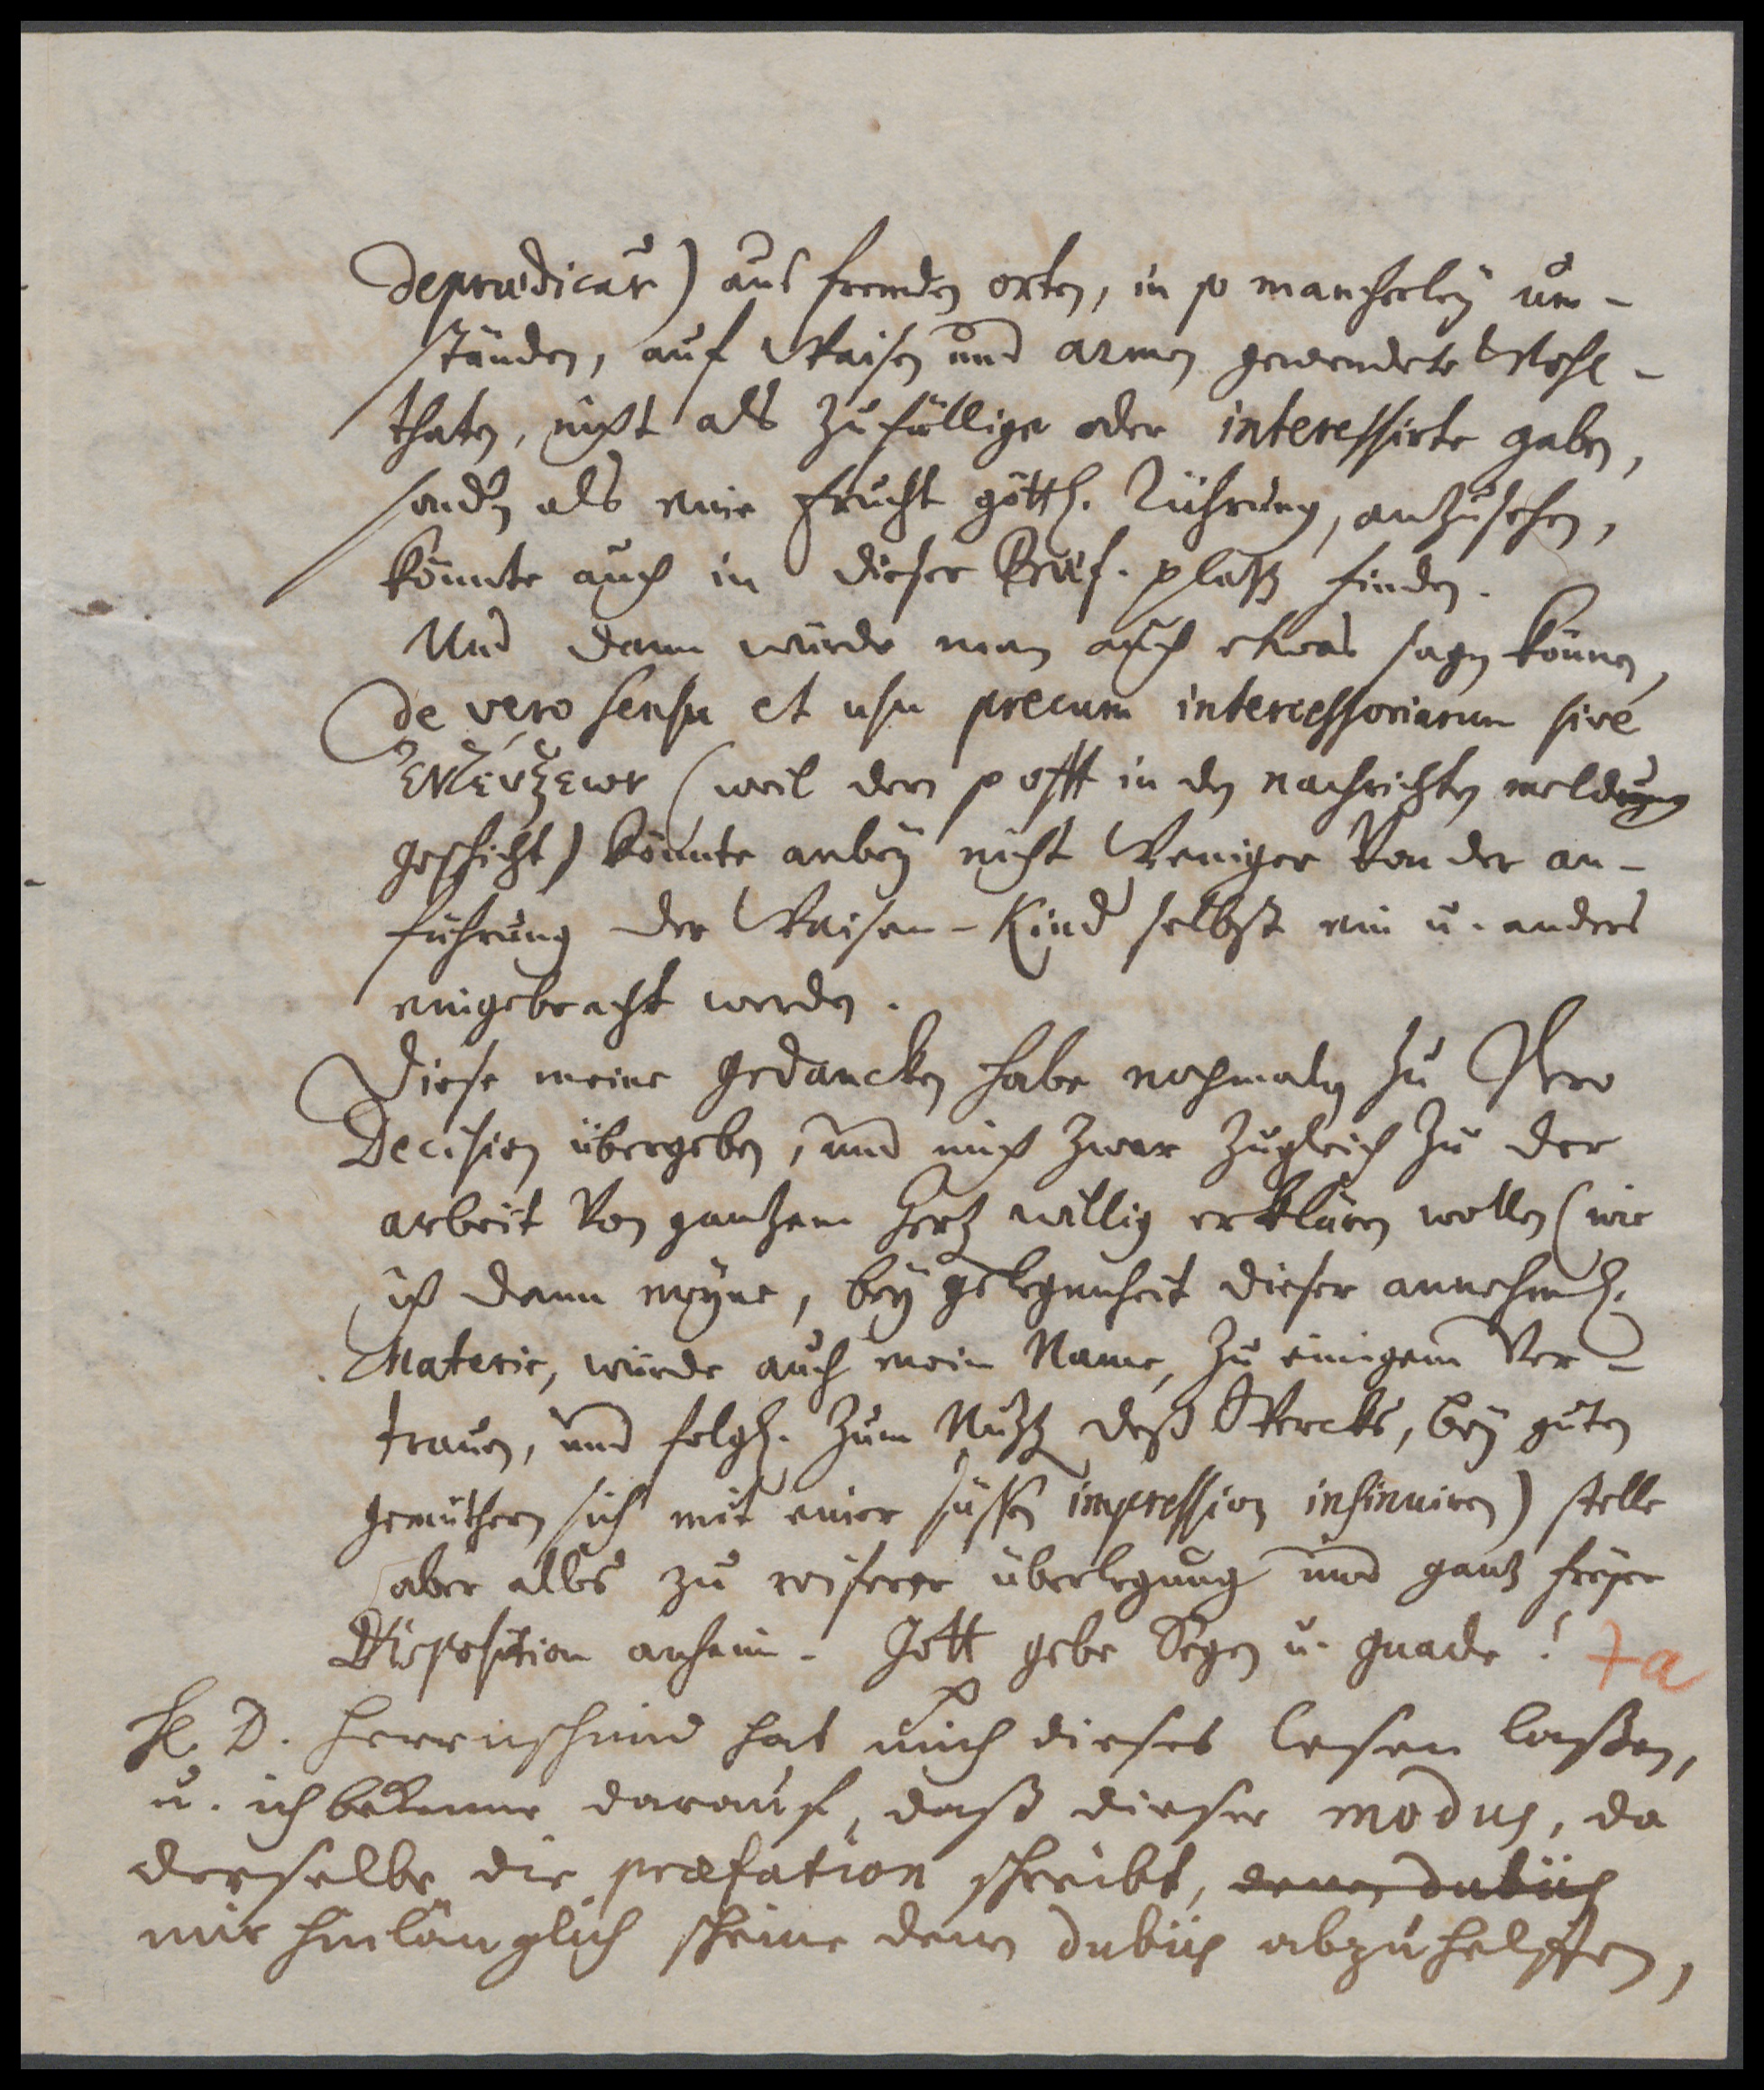 deprædicar) aus fremden orten, in so mancherley um-
ständen, auf Waisen und armen gewendete Wohl-
thaten, nicht als zufällige oder interessirte gaben,
sondern als eine Frucht göttl. Rührung, anzusehen,
könnte auch in dieser Præf. platz finden.
Und dann würde man auch etwas sagen können,
de vero sensu et usu precum intercessoriarum sive
ἐντεύξεων (weil deren so offt in den nachrichten meldung
geschicht) könnte anbey nicht Weniger Von der an-
führung der Waisen-Kind selbst ein u. anders
eingebracht werden.
Diese meine gedancken habe nochmaln zu Dero
Decision übergeben, und mich zwar zugleich zu der
arbeit Von gantzem Hertz willig erklären wollen (wie
ich dann meyne, bey gelegenheit dieser annehml.
Materie, würde auch mein Name, zu einigem Ver-
trauen, und folgl. zum Nutz deß Wercks, bey guten
gemüthern sich mit einer süssen impression insinuiren) stelle
aber alles zu weiserer überlegung und gantz freyer
Disposition anheim. Gott gebe Segen u. gnade! ta
H. D. Herrnschmid hat mich dieses lesen laßen,
u. ich bekenne darauf, daß dieser modus, da
derselbe die præfation schreibt, denen dubiis
mir hinlänglich scheine denen dubiis abzuhelffen,